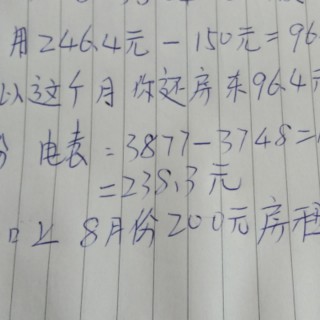 用246.4元-150元=96
这个月你还房东96.4元
电表:3877-3748=
=238.3元
8月份200元房租